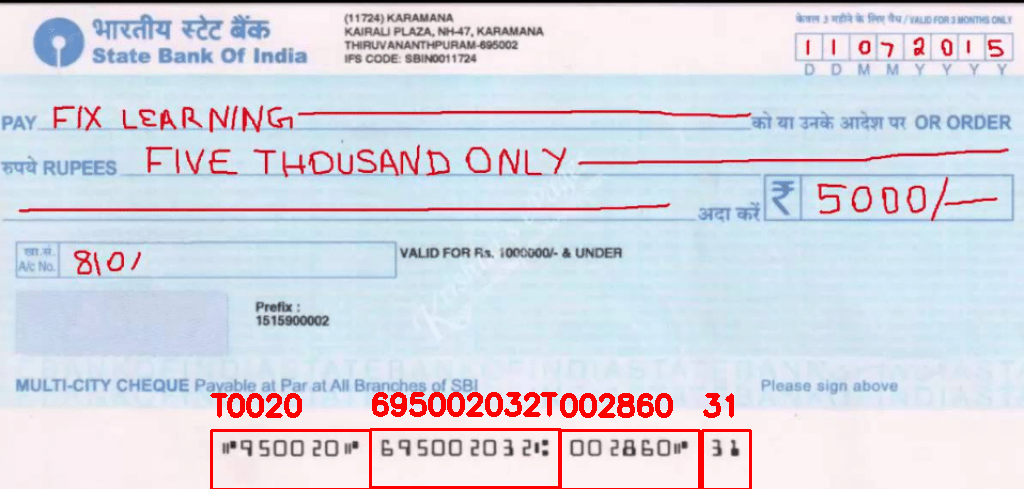 भारतीय स्टेट बैंक
State Bank Of India
(11724) KARAMANA
KAIRALI PLAZA, NH-47, KARAMANA
THIRUVANANTHPURAM-695002
IFS CODE: SBIN0011724
केवल 3 महीने के लिए वैध / VALID FOR 3 MONTHS ONLY
1 1 0 7 2 0 1 5
D D M M Y Y Y Y
PAY FIX LEARNING को या उनके आदेश पर OR ORDER
रुपये RUPEES FIVE THOUSAND ONLY
अदा करें ₹ 5000/-
खा.सं. A/c No. 8101
VALID FOR Rs. 1000000/- & UNDER
Prefix :
1515900002
MULTI-CITY CHEQUE Payable at Par at All Branches of SBI
Please sign above
T0020 695002032T002860 31
⑈950020⑈ 695002032⑆ 002860⑈ 31